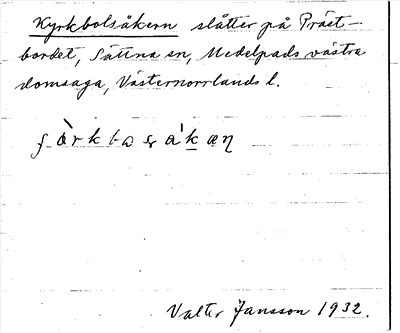 Kyrkbolsåkern slåtter på Präst-
bordet, Sättna sn, Medelpads västra
domsaga, Västernorrlands l.
Valter Jansson 1932.